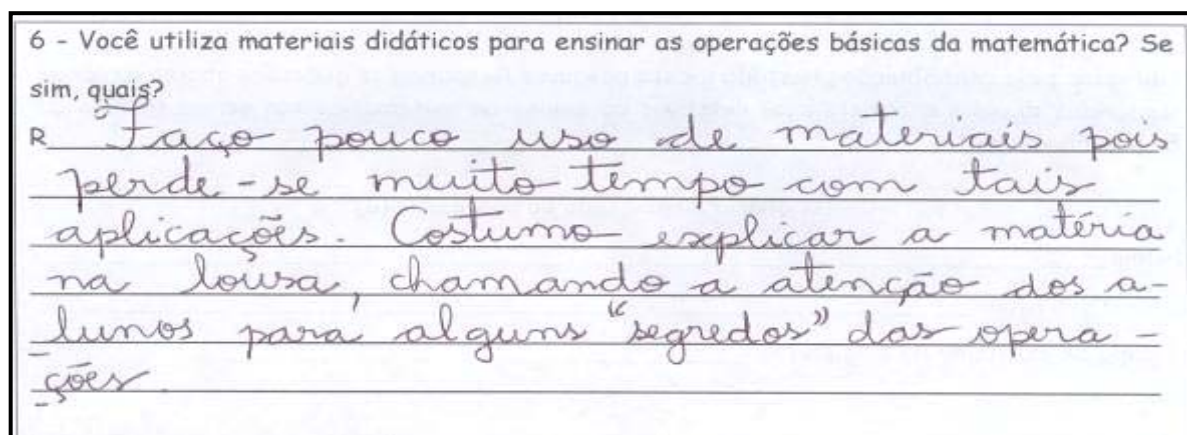 6 - Você utiliza materiais didáticos para ensinar as operações básicas da matemática? Se
sim, quais?
R Faço pouco uso de materiais pois
perde-se muito tempo com tais
aplicações. Costumo explicar a matéria
na lousa, chamando a atenção dos a-
lunos para alguns "segredos" das opera-
-ções.